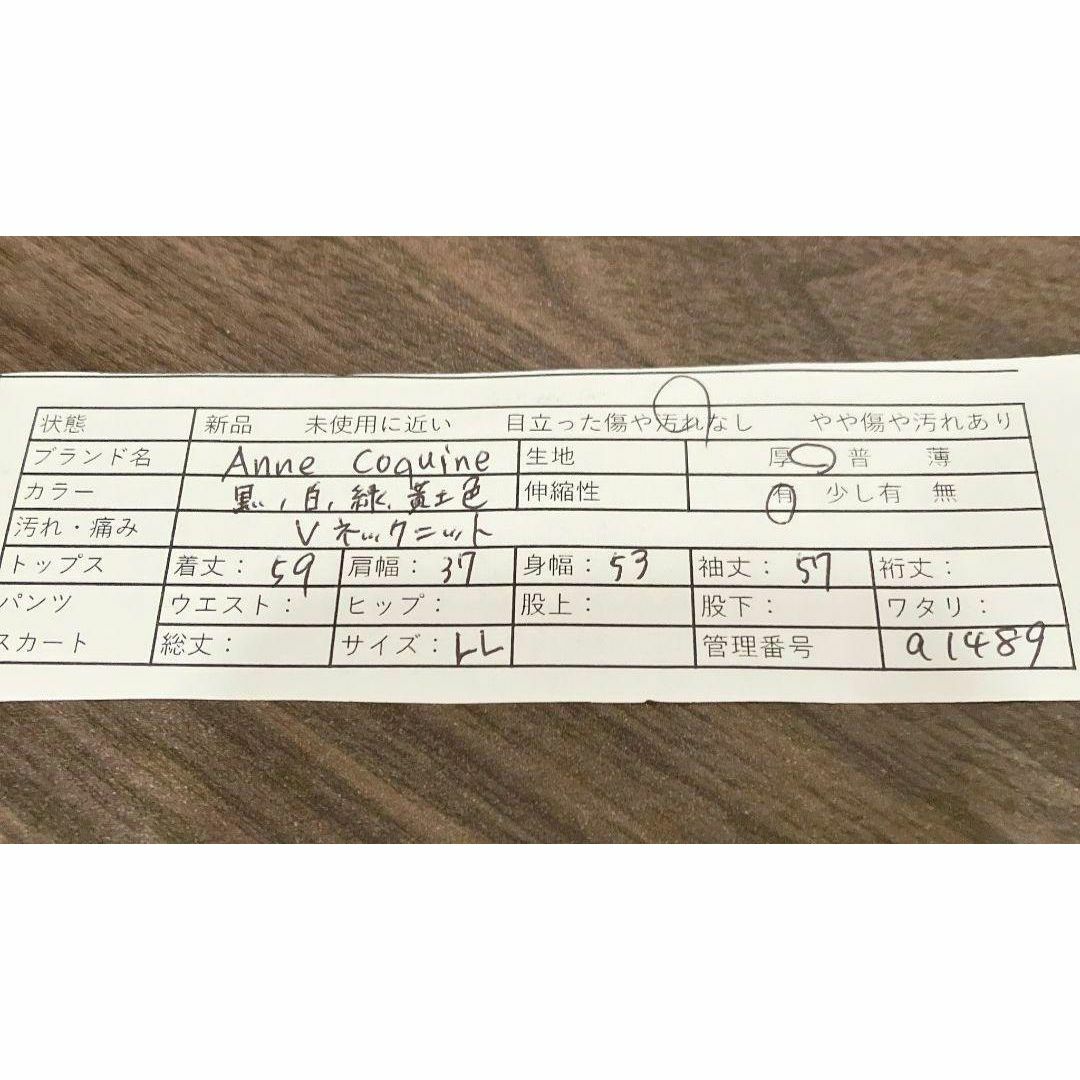 状態 新品 未使用に近い 目立った傷や汚れなし やや傷や汚れあり
ブランド名 Anne Coquine 生地 厚 普 薄
カラー 黒,白,緑,黄土色 伸縮性 有 少し有 無
汚れ・痛み Vネックニット
トップス 着丈: 59 肩幅: 37 身幅: 53 袖丈: 57 裄丈:
パンツ ウエスト: ヒップ: 股上: 股下: ワタリ:
スカート 総丈: サイズ: LL 管理番号 a1489